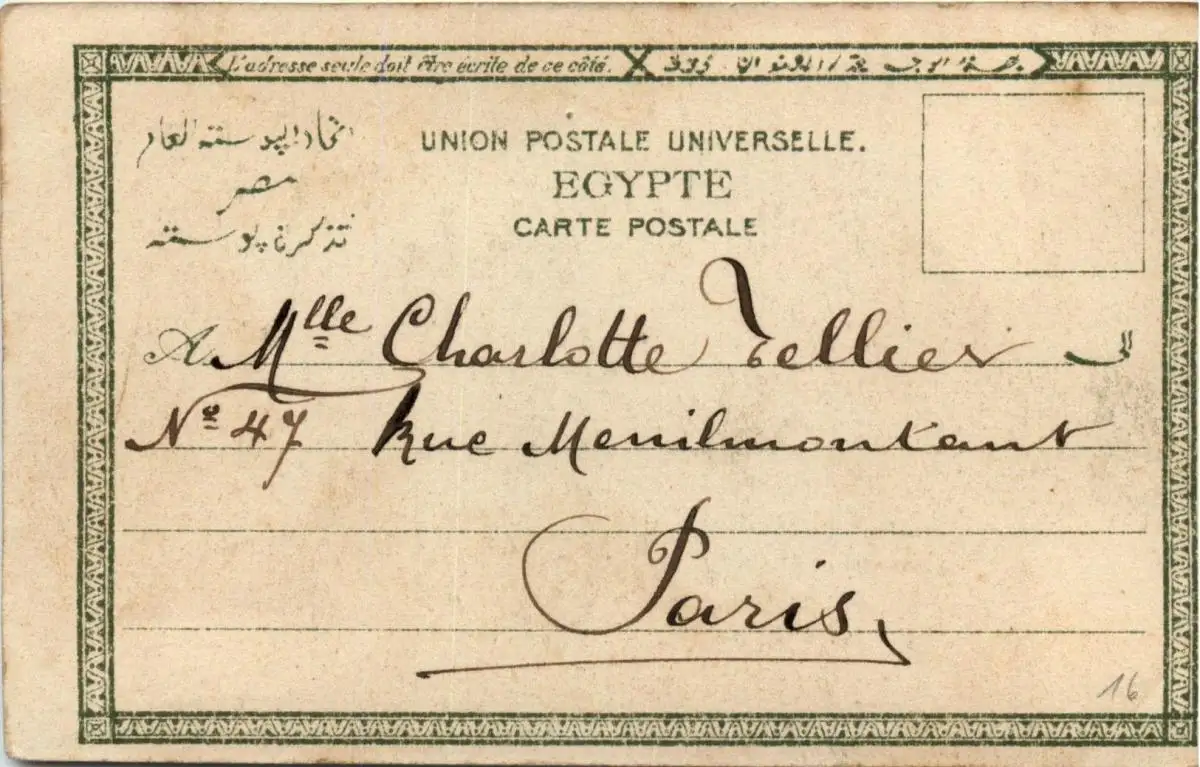 L'adresse seule doit être écrite de ce côté.
اتحاد البوسته العام
مصر
تذكرة بوسته
UNION POSTALE UNIVERSELLE.
EGYPTE
CARTE POSTALE
A Mlle Charlotte Tellier الى
No 47 Rue Menilmontant
Paris
16